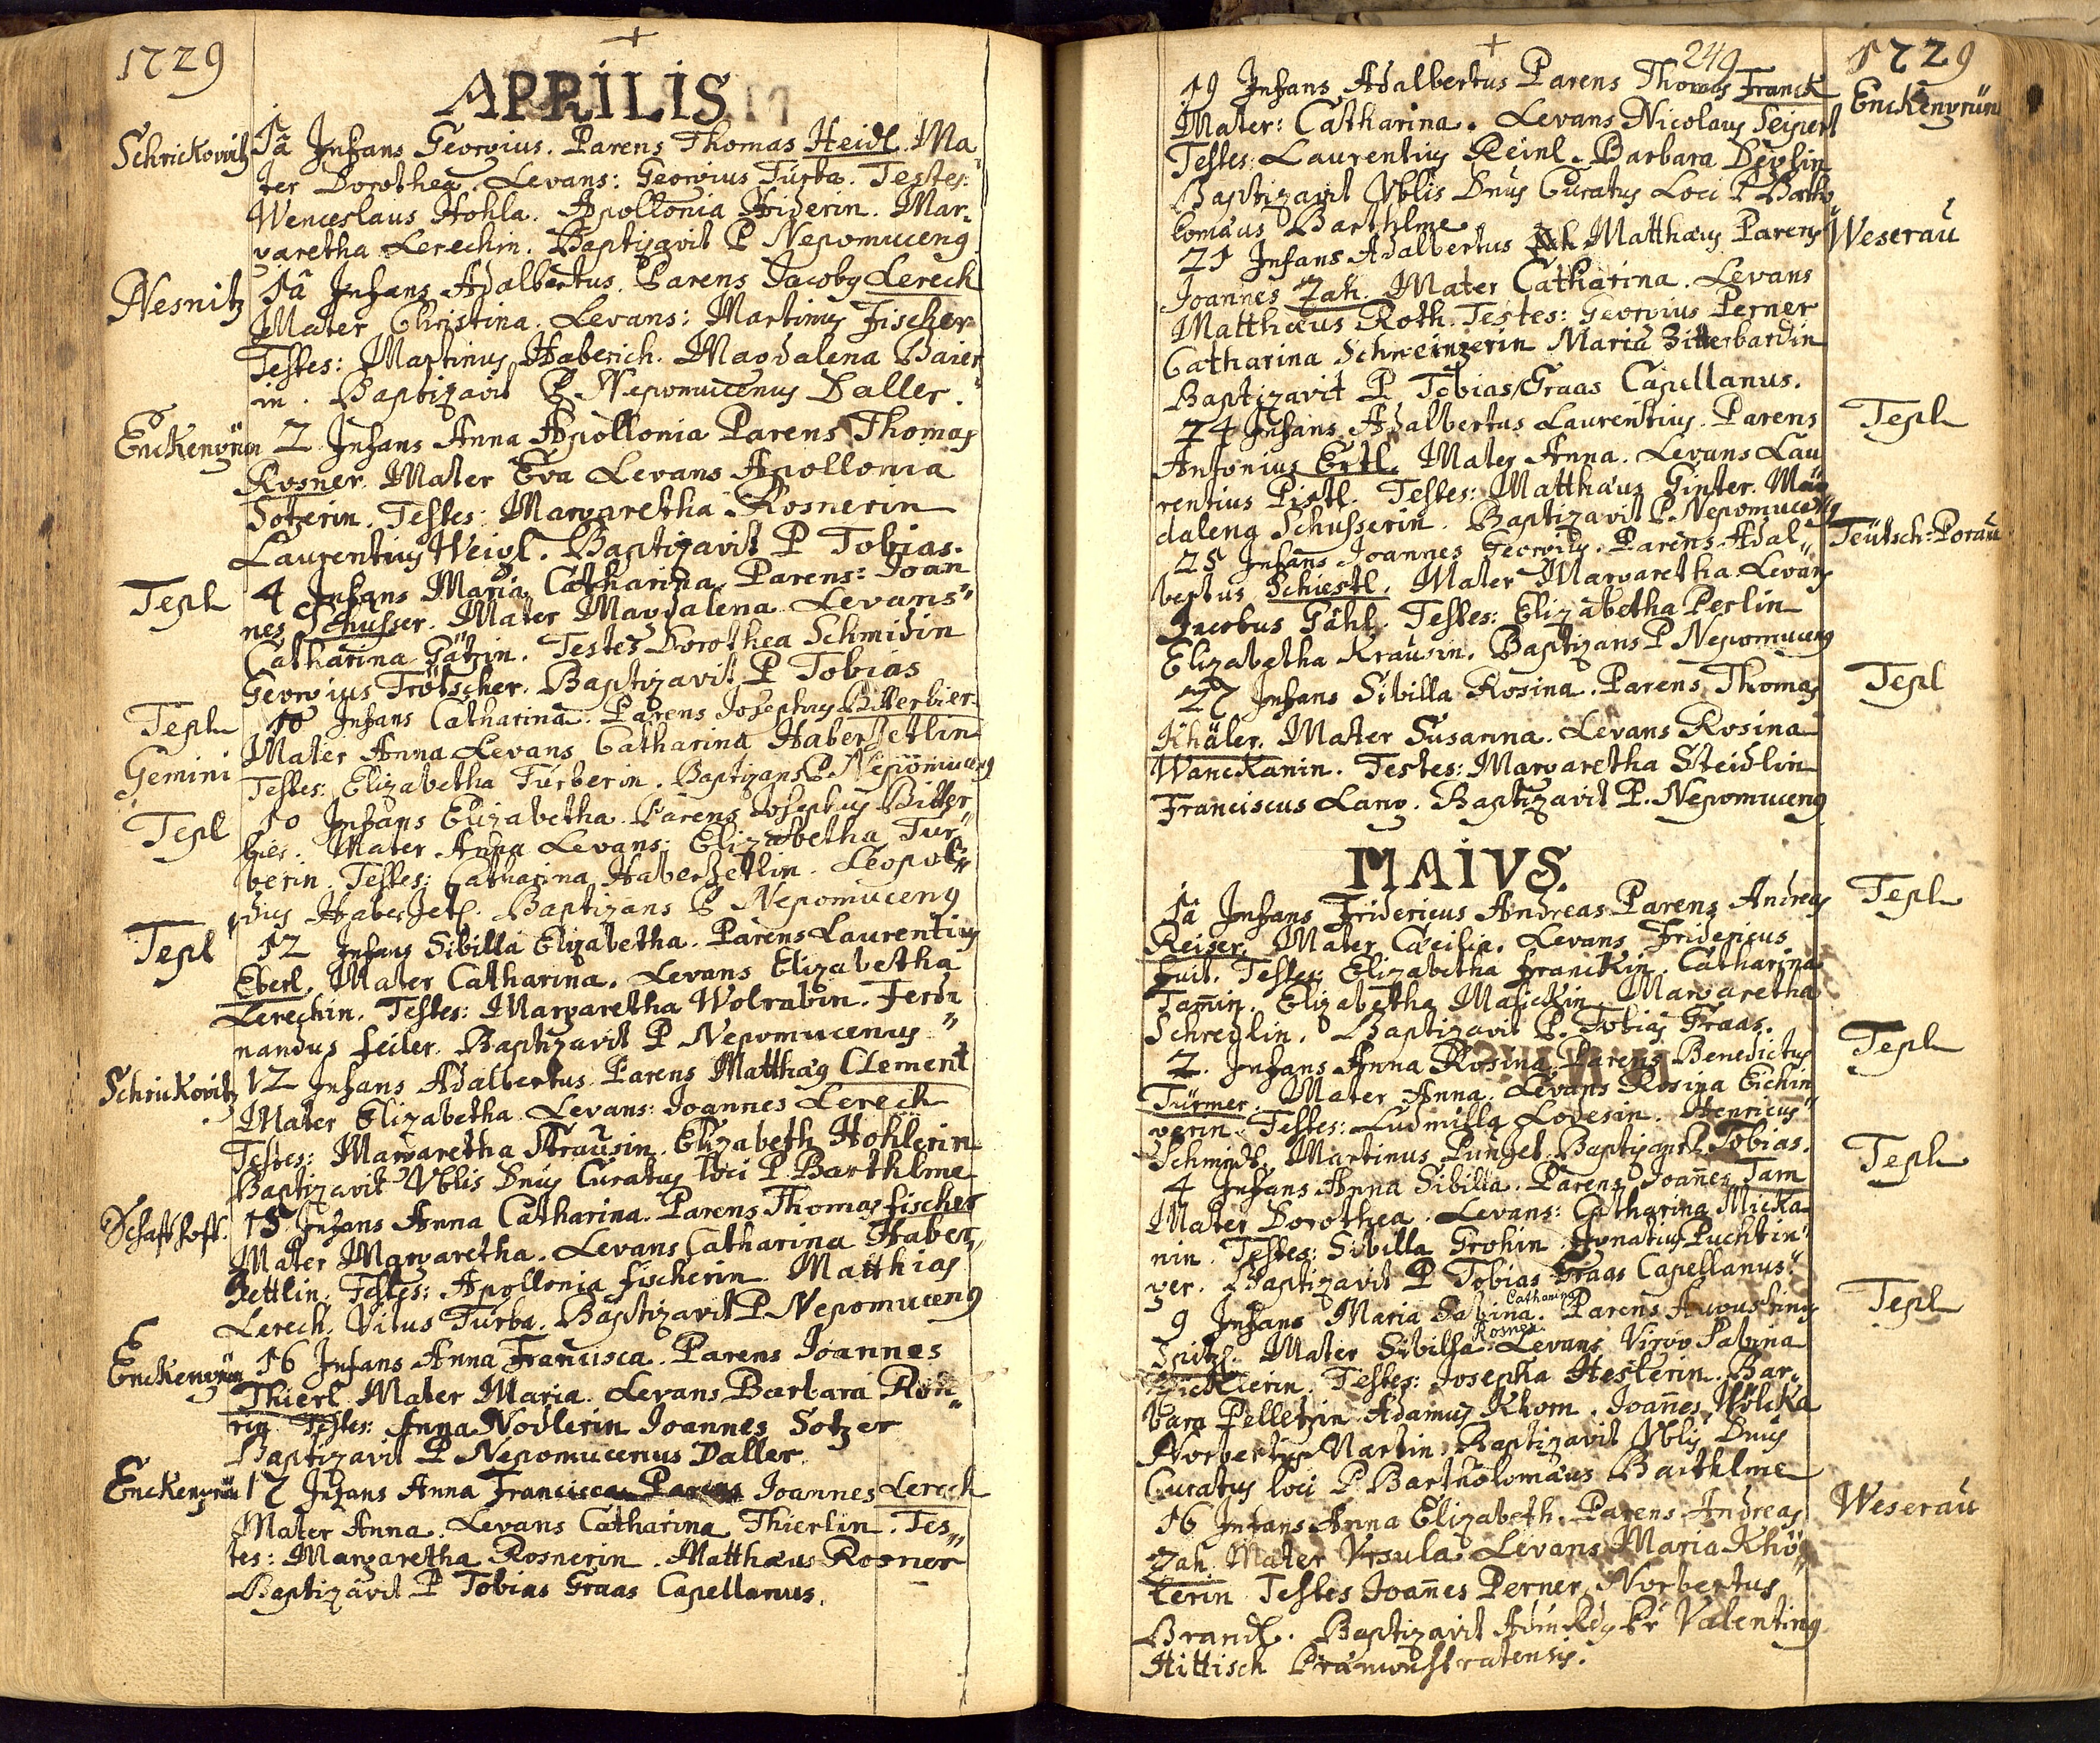 1729
APRILIS
Schrickovitz
1a Infans Georgius. Parens Thomas Heidl. Ma
ter Dorothea. Levans: Georgius Turba. Testes:
Wenceslaus Hohla. Apollonia Heiderin. Mar,
garetha Lerechin. Baptizavit P Nepomuceng
Nesnitz
1a Infans Adalbertus. Parens Jacobg Lerech
Mater Christina. Levans: Martinus Fischer
Testes: Martinus Haberich. Magdalena Baier
in. Baptizavit P. Nepomucenus Daller.
Enckengrün
2 Infans Anna Apollonia Parens Thomas
Rosner. Mater Eva Levans Apollonia
Sotzerin. Testes: Margaretha Rosnerin
Laurentius Weigl. Baptizavit P Tobias.
Tepl
4 Infans Maria Catharina. Parens: Joan
nes Schusser. Mater Magdalena Levans
Catharina Gätzin. Testes Dorothea Schmidin
Georgius Trötscher. Baptizavit P Tobias
Tepl
Gemini
10 Infans Catharina. Parens Josephus Bitterbier.
Mater Anna Levans Catharina Haberzetlin
Testes: Elizabetha Turberin. Baptizans P Nepomuceng
Tepl
10 Infans Elizabetha. Parens Josephus Bitter
bier. Mater Anna Levans: Elizabetha Tur
berin. Testes: Catharina Haberzetlin. Leopol
dus Haberzetl. Baptizans P Nepomuceng
Tepl
12 Infans Sibilla Elizabetha. Parens Laurentius
Eberl. Mater Catharina. Levans Elizabetha
Lerechin. Testes: Margaretha Wolrabin. Ferdi
nandus feiler. Baptizavit P Nepomucenus
Schrickovitz
12 Infans Adalbertus. Parens Matthäg Clement
Mater Elizabetha. Levans: Joannes Lerech
Testes: Margaretha Straüsin. Elizabeth Hohlerin
Baptizavit Vblis Dnus Curatus loci P. Barthlme
Schaffhoff.
15 Infans Anna Catharina. Parens Thomas fischer
Mater Margaretha. Levans Catharina Haber,
Zettlin. Testes: Apollonia fischerin. Matthias
Lerech. Vitus Turba. Baptizavit P. Nepomuceng
Enckengrün
16 Infans Anna Francisca. Parens Joannes
Thierl. Mater Maria. Levans Barbara
rin Testes: Anna Nodlerin Joannes Sotzer
Baptizavit P Nepomucenus Daller.
Enckengrün
17 Infans Anna Francisca Parens Joannes Lerech
Mater Anna. Levans Catharina Thierlin. Tes,
tes: Margaretha Rosnerin. Matthäus Rosner
Baptizavit P Tobias Graas Capellanus.
249
1729
Enckengrün
19 Infans Adalbertus Parens Thomas Franck
Mater: Catharina. Levans Nicolaus Seipert
Testes: Laurentius Reinl. Barbara
Baptizavit Vblis Dnus Curatus Loci P Bartho,
lomäus Barthlme
Weseraü
21 Infans Adalbertus Matthäus Parens
Joannes Zah. Mater Catharina. Levans
Matthäus Roth. Testes: Georgius Perner
Catharina Schweinzerin Maria Zitterbardin
Baptizavit P. Tobias Graas Capellanus.
Tepl
24 Infans Adalbertus Laurentius. Parens
Antonius Ertl. Mater Anna. Levans Lau
rentius Pistl. Testes: Matthäus Ginter. Mag
dalena Schusserin. Baptizavit P. Nepomuceng
Teütsch-Poraü
25 Infans Joannes Georgius. Parens Adal,
bertus Schiestl. Mater Margaretha Levans
Jacobus Gähl. Testes: Elizabetha Perlin
Elizabetha Kraüsin. Baptizans P Nepomuceng
Tepl
27 Infans Sibilla Rosina. Parens Thomas
Khäler. Mater Susanna. Levans Rosina
Wanckanin. Testes: Margaretha Steidlin
Franciscus Lang. Baptizavit P. Nepomuceng
MAIVS.
Tepl
1a Infans Fridericus Andreas Parens Andreas
Reiser. Mater Cæcilia. Levans Fridericus
fuit. Testes: Elizabetha franckin. Catharina
Tamin. Elizabetha Masickin. Margaretha
Schreglin. Baptizavit P. Tobias Graas.
Tepl
2. Infans Anna Rosina Parens Benedictus
Türmer. Mater Anna. Levans Rosina Eichin
gerin. Testes: Ludmilla Lodesin. Henricus
Schmidt. Martinus Punzet. Baptizans P Tobias.
Tepl
4 Infans Anna Sibilla. Parens Joanes Tam
Mater Dorothea. Levans: Catharina Micka
nin. Testes: Sibilla Grohin Ignatius Puchtin
ger. Baptizavit P Tobias Graas Capellanus
Tepl
Catharina
9 Infans Maria Sabina. Parens Augustinus
Rosner
Spitzl. Mater Sibilla Levans Virgo Sabina
Zicklerin. Testes: Josepha Hesterin. Bar,
bara Pelletzin Adamus Khom. Joanes Wölcka
Norbertus Martin. Baptizavit Vblis Dnus
Curatus loci P Bartholomäus Barthlme
Weseraü
16 Infans Anna Elizabeth. Parens Andreas
Zah. Mater Vrsula. Levans Maria Khö,
lerin Testes Joanes Perner Norbertus
Brandl. Baptizavit Adm Rdg Pr Valenting
Hittisch Præmonstratensis.